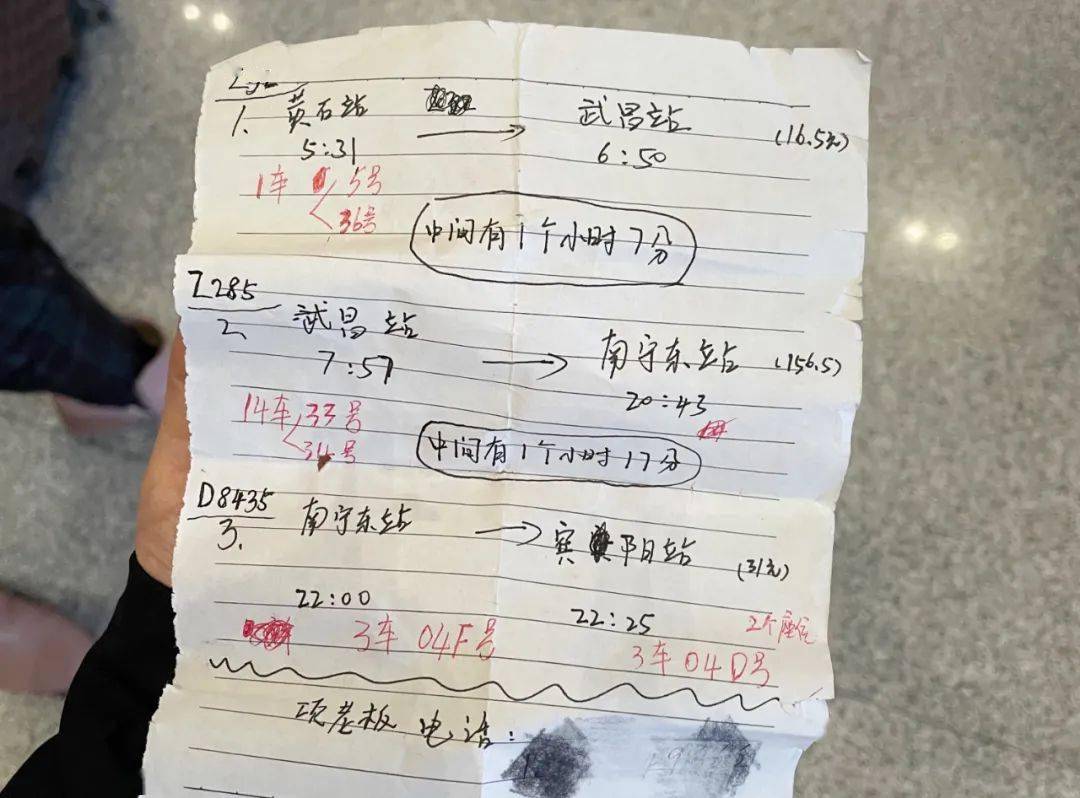 1. 黄石站 → 武昌站 (16.5元)
5:31 6:50
1车 5号
36号
中间有1个小时7分
Z285
2 武昌站 → 南宁东站 (156.5)
7:57 20:43
14车 33号
34号
中间有1个小时17分
D8435
3. 南宁东站 → 宾阳站 (31元)
22:00 22:25 2个座位
3车 04F号 3车 04D号
项老板 电话: